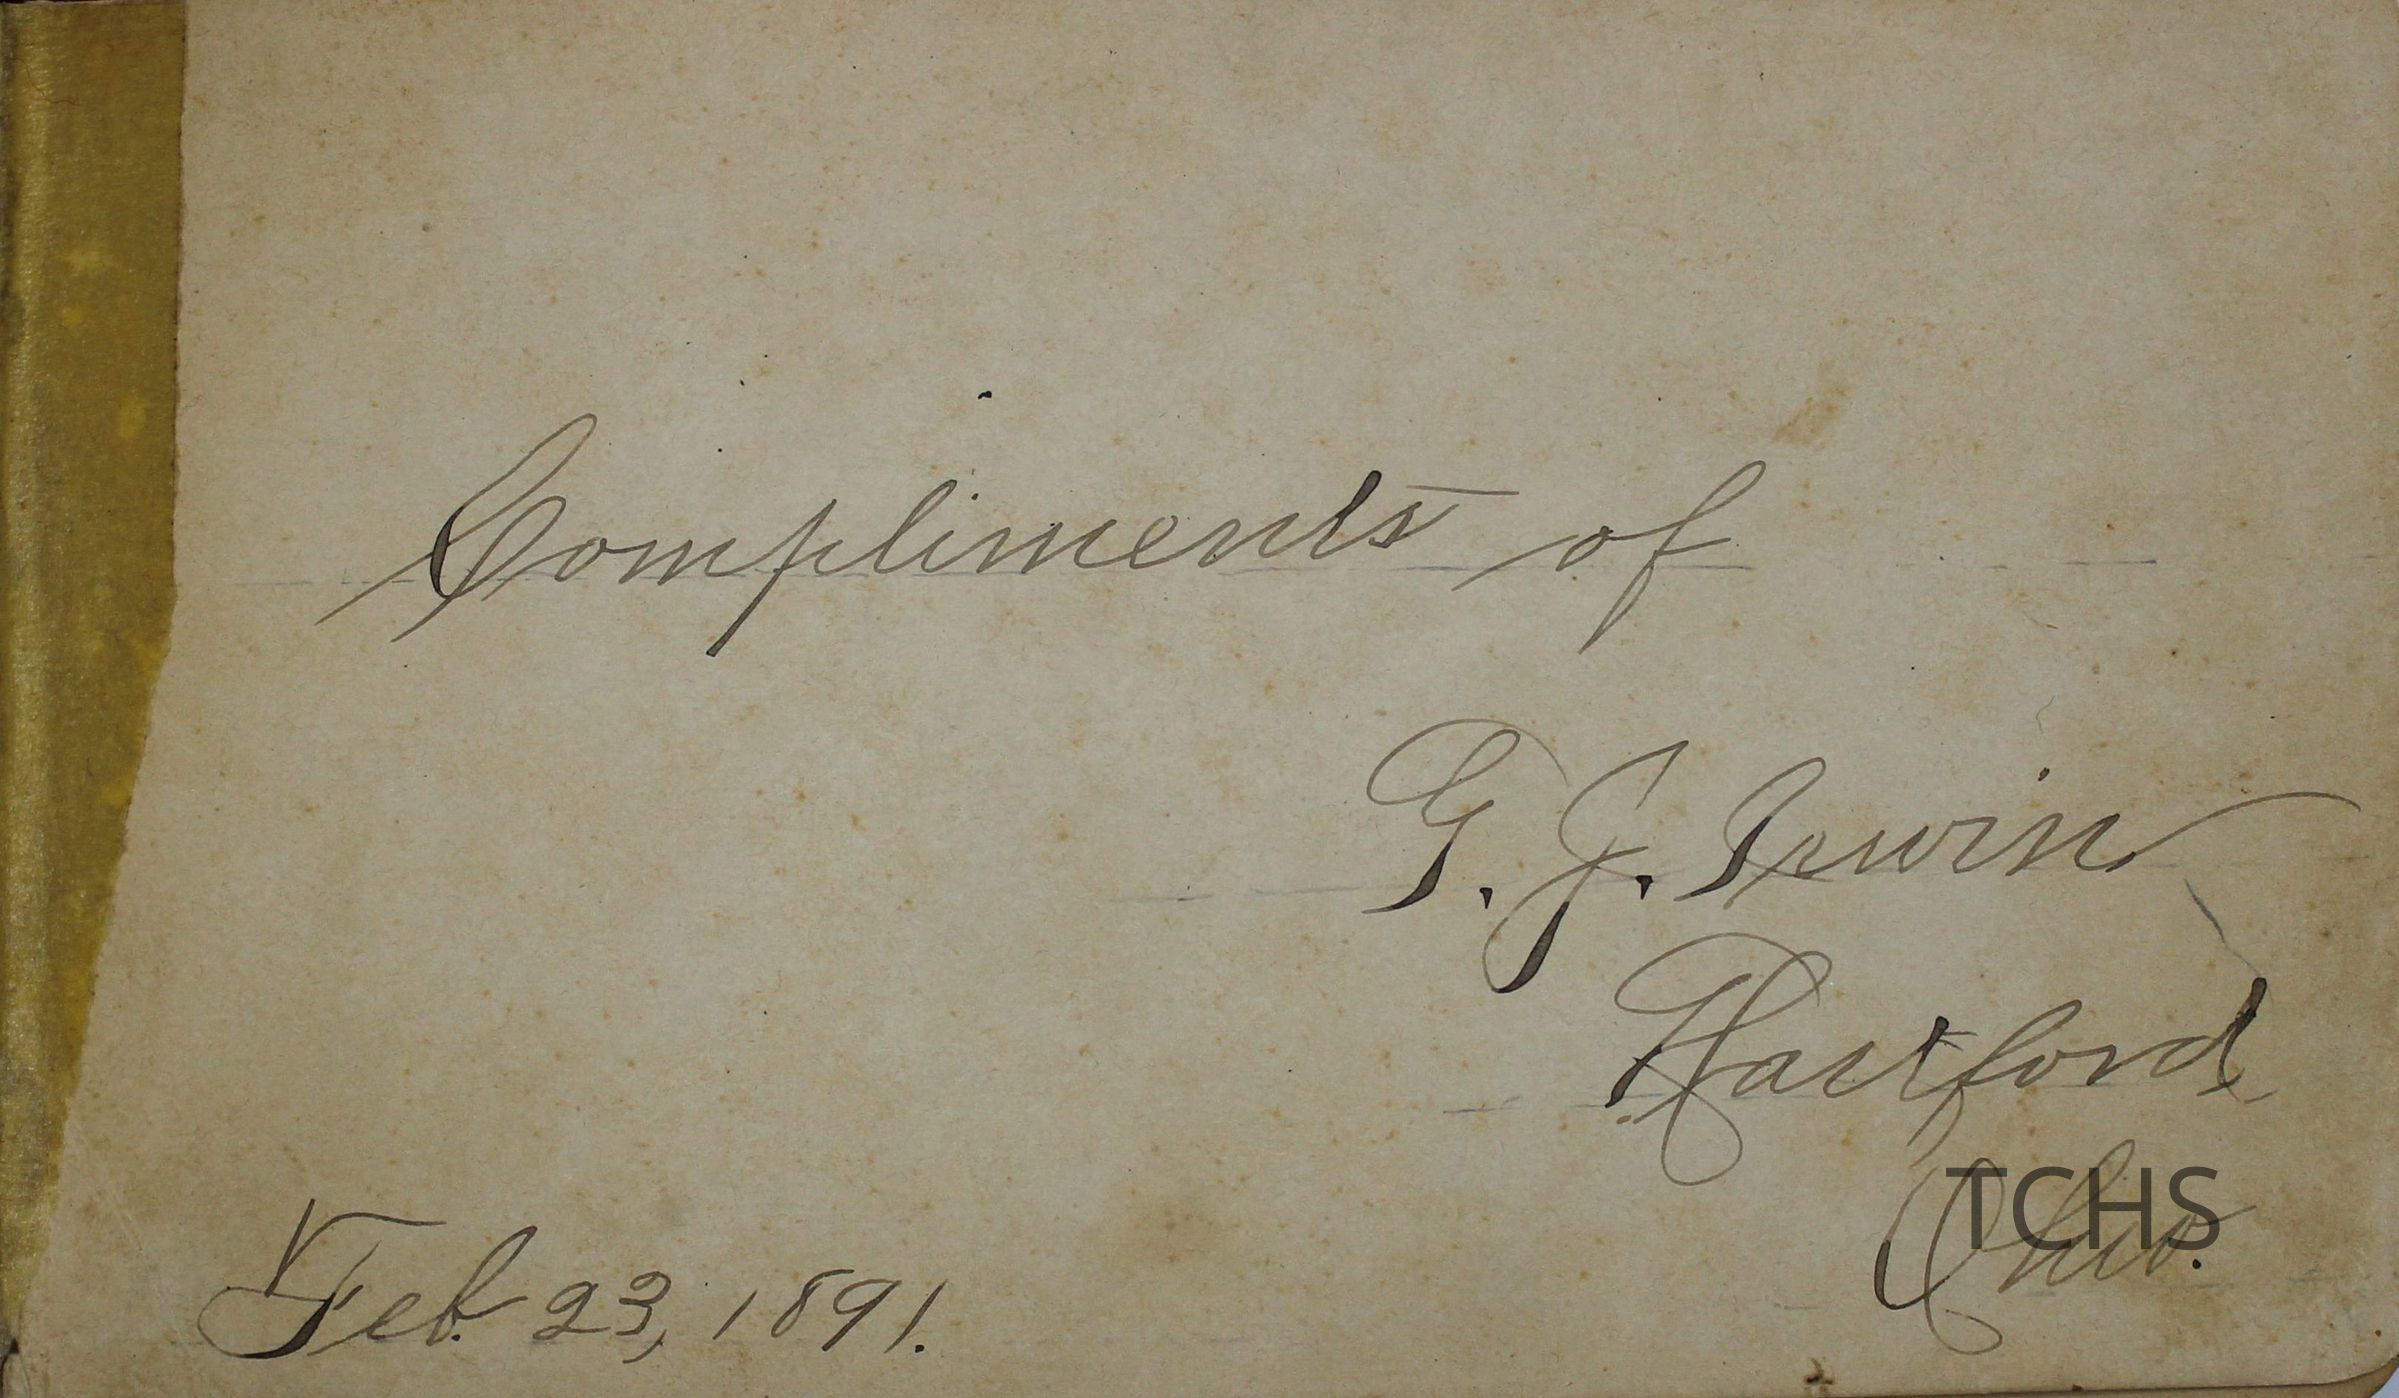 Compliments of
G. J. Irwin
Hartford
Ohio.
TCHS
Feb. 23, 1891.